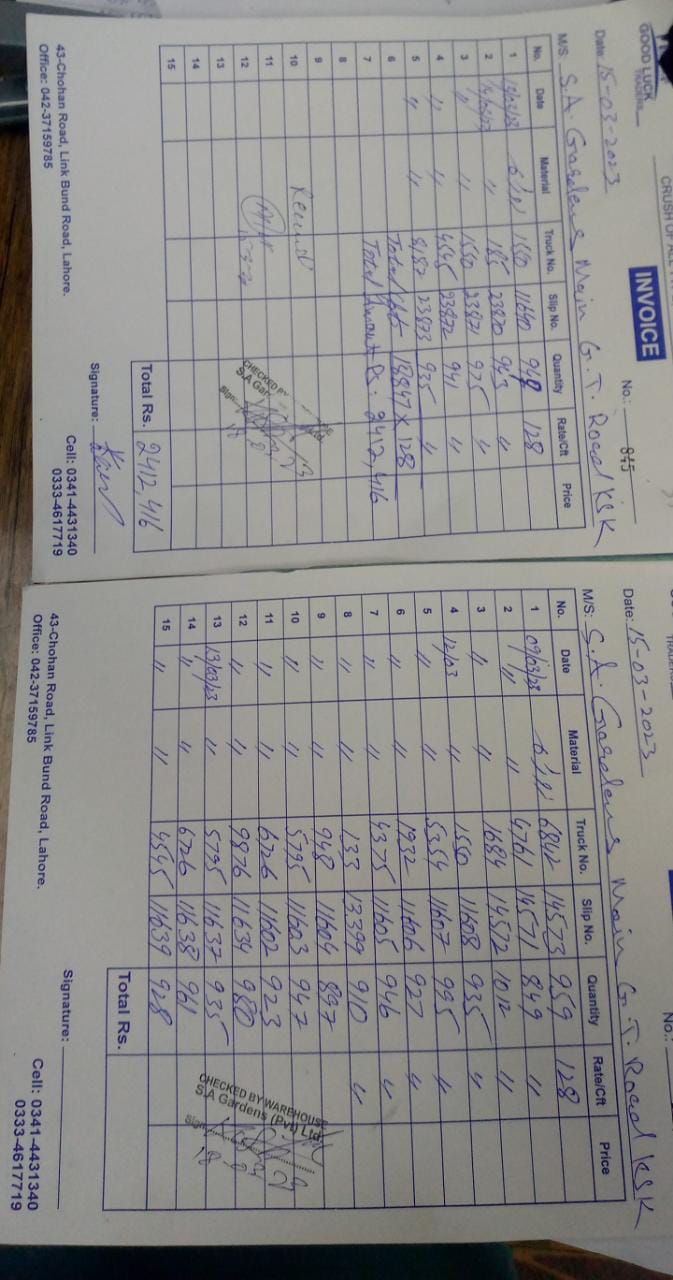 GOOD LUCK
TRADERS
CRUSH OF ALL
INVOICE
No.: 845
Date 15-03-2023
M/S: S.A. Gardens Main G.T. Road KSK
No. Date Material Truck No. Slip No. Quantity Rate/Cft Price
1 13/03/23 1550 11640 948 128
2 185 23870 943 "
3 " " 1550 23871 975 "
4 " " 4545 23872 941 "
5 " " 23873 935 "
6 Total cft 18847 x 128
7 Total Amount Rs. 2412,416
8
9
10
11
12
13
14
15
CHECKED BY
S.A Gar
Total Rs. 2412,416
Signature:
43-Chohan Road, Link Bund Road, Lahore.
Office: 042-37159785
Cell: 0341-4431340
0333-4617719
TRADERS
No.:
Date: 15-03-2023
M/S: S.A. Gardens Main G.T. Road KSK
No. Date Material Truck No. Slip No. Quantity Rate/Cft Price
1 09/03/23 6842 14573 959 128
2 " " 4761 14571 849 "
3 " " 1684 14572 1012 "
4 12/03 " 1550 11608 935 "
5 " " 5354 11607 995 "
6 " " 1932 11606 927 "
7 " " 4375 11605 946 "
8 " " 133 13399 910 "
9 " " 948 11604 897
10 " " 5795 11603 947
11 " " 6726 11602 923
12 " " 9876 11634 980
13 13/03/23 " 5795 11637 935
14 " " 6726 11638 961
15 " " 4545 11639 928
Total Rs.
CHECKED BY WAREHOUSE
S.A Gardens (Pvt) Ltd
Signature:
43-Chohan Road, Link Bund Road, Lahore.
Office: 042-37159785
Cell: 0341-4431340
0333-4617719